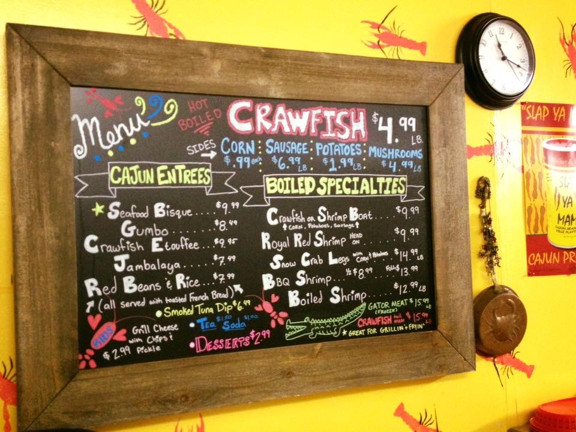 Menu
HOT BOILED
CRAWFISH $4.99 LB.
SIDES
CORN $.99
SAUSAGE $6.99 LB
POTATOES $1.99 LB
MUSHROOMS $4.99 LB
CAJUN ENTREES
Seafood Bisque.... $9.99
Gumbo..... $8.49
Crawfish Etouffee... $9.95
Jambalaya..... $7.99
Red Beans & Rice... $7.99
(all served with toasted French Bread)
BOILED SPECIALTIES
Crawfish or Shrimp Boat.... $9.99
( Corn, Potatoes, Sausage )
Royal Red Shrimp HEAD ON .... $9.99 LB
Snow Crab Legs with ... $14.99
BBQ Shrimp... $8.99 $13.99
Boiled Shrimp..... $12.99 LB
Smoked Tuna Dip $6.99
Tea Soda
DESSERTS $2.99
KIDS
Grill Cheese
with Chips &
Pickle
$2.99
GATOR MEAT $15.99 LB
(FROZEN)
CRAWFISH MEAT $15.99 LB
GREAT FOR GRILLIN & FRYIN'
"SLAP YA
YA
MAM
CAJUN PR